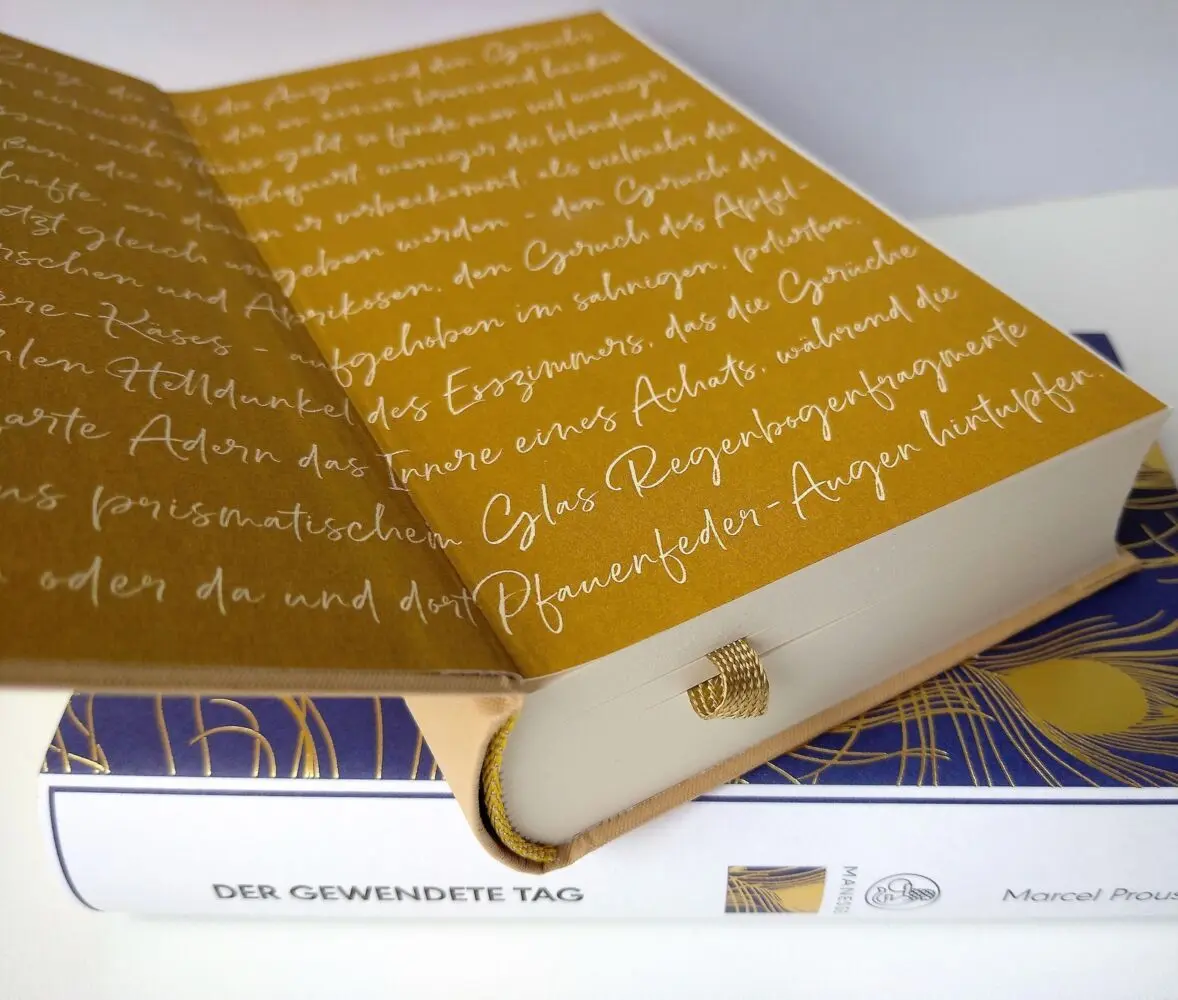 auf die Augen und den Geruchs-
einem der an einem Sommerabend
geht, so fände man viel weniger
durchquert, weniger die blendenden
an denen er vorbeikommt, als vielmehr die
jetzt gleich umgeben werden - den Geruch der
Kirschen und Aprikosen, den Geruch des Apfel-
Käses - aufgehoben im sahnigen, polierten,
Helldunkel des Esszimmers, das die Gerüche
zarte Adern das Innere eines Achats, während die
aus prismatischem Glas Regenbogenfragmente
oder da und dort Pfauenfeder-Augen hintupfen.
DER GEWENDETE TAG
MANESSE
Marcel Prous